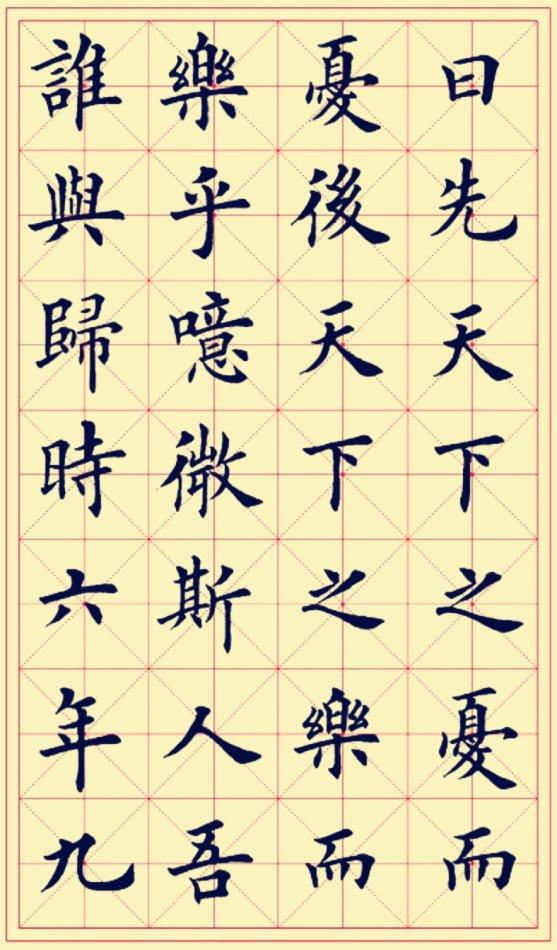 曰先天下之憂而
憂後天下之樂而
樂乎噫微斯人吾
誰與歸時六年九